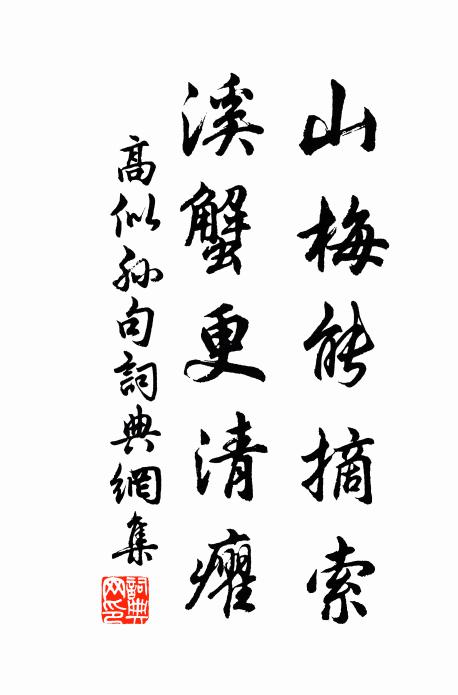 山梅能摘索
溪蟹更清癯
高似孙句詞典網集
詞典网印